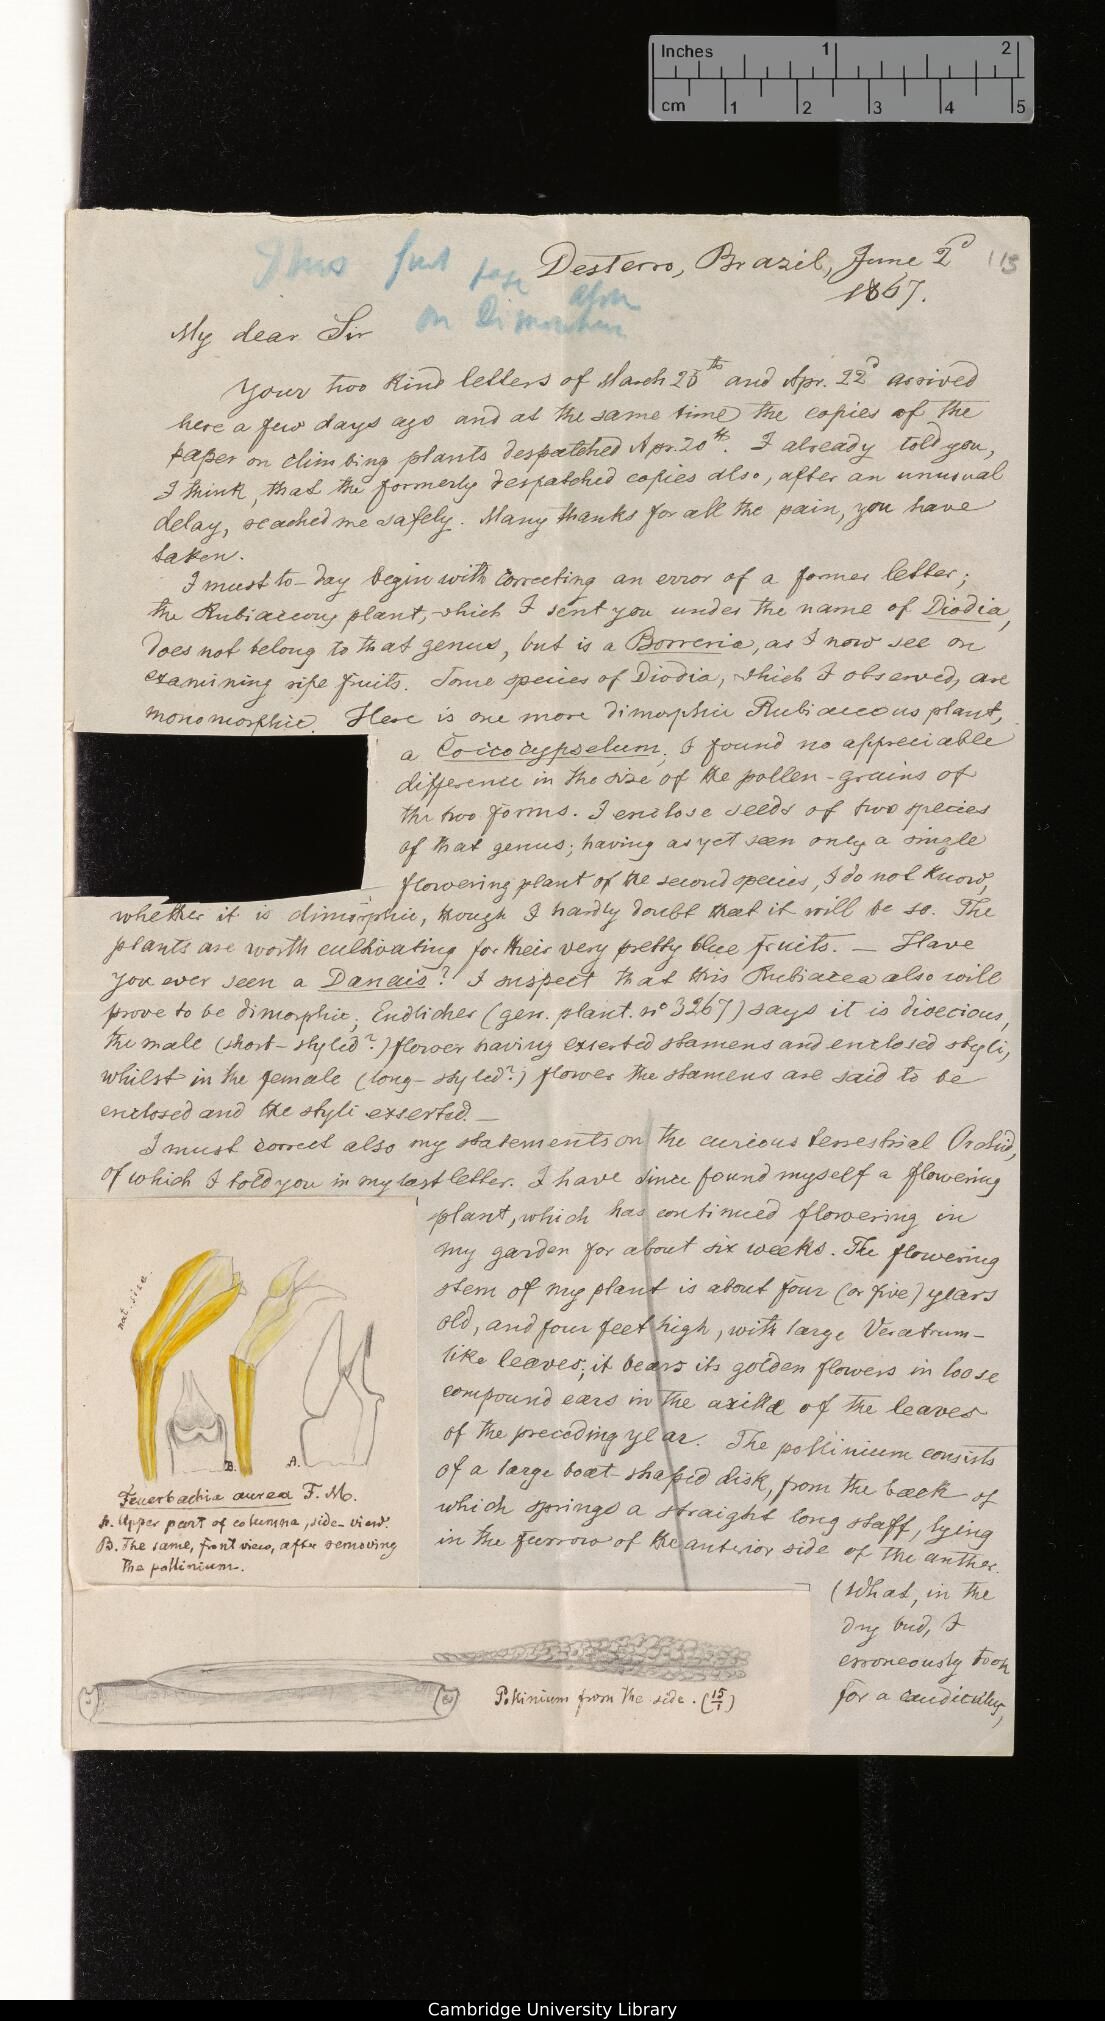 Inches 1 2
cm 1 2 3 4 5
Desterro, Brazil, June 2d
1867.
113
This first page
on Dimorphism
My dear Sir
Your two kind letters of March 25th and Apr. 22d arrived
here a few days ago and at the same time the copies of the
paper on climbing plants despatched Apr. 20th. I already told you,
I think, that the formerly despatched copies also, after an unusual
delay, reached me safely. Many thanks for all the pain, you have
taken.
I must to-day begin with correcting an error of a former letter;
the Rubiaceous plant, which I sent you under the name of Diodia,
does not belong to that genus, but is a Borreria, as I now see on
examining ripe fruits. Some species of Diodia, which I observed, are
monomorphic. Here is one more dimorphic Rubiaceous plant,
a Coccocypselum; I found no appreciable
difference in the size of the pollen-grains of
the two forms. I enclose seeds of two species
of that genus; having as yet seen only a single
flowering plant of the second species, I do not know,
whether it is dimorphic, though I hardly doubt that it will be so. The
plants are worth cultivating for their very pretty blue fruits. — Have
you ever seen a Danais? I suspect that this Rubiacea also will
prove to be dimorphic; Endlicher (gen. plant. no 3267) says it is dioecious,
the male (short-styled?) flower having exserted stamens and enclosed styli,
whilst in the female (long-styled?) flower the stamens are said to be
enclosed and the styli exserted. —
I must correct also my statements on the curious terrestrial Orchid,
of which I told you in my last letter. I have since found myself a flowering
plant, which has continued flowering in
my garden for about six weeks. The flowering
stem of my plant is about four (or five) years
old, and four feet high, with large Veratrum-
like leaves; it bears its golden flowers in loose
compound ears in the axilla of the leaves
of the preceding year. The pollinium consists
of a large boat-shaped disk, from the back of
which springs a straight long staff, lying
in the furrow of the anterior side of the anther.
(What, in the
dry bud, I
erroneously took
for a caudiculus,
nat. size.
B. A.
Feuerbachia aurea F. M.
A. Upper part of columna, side-view.
B. The same, front view, after removing
the pollinium.
Pollinium from the side. (15/1)
Cambridge University Library